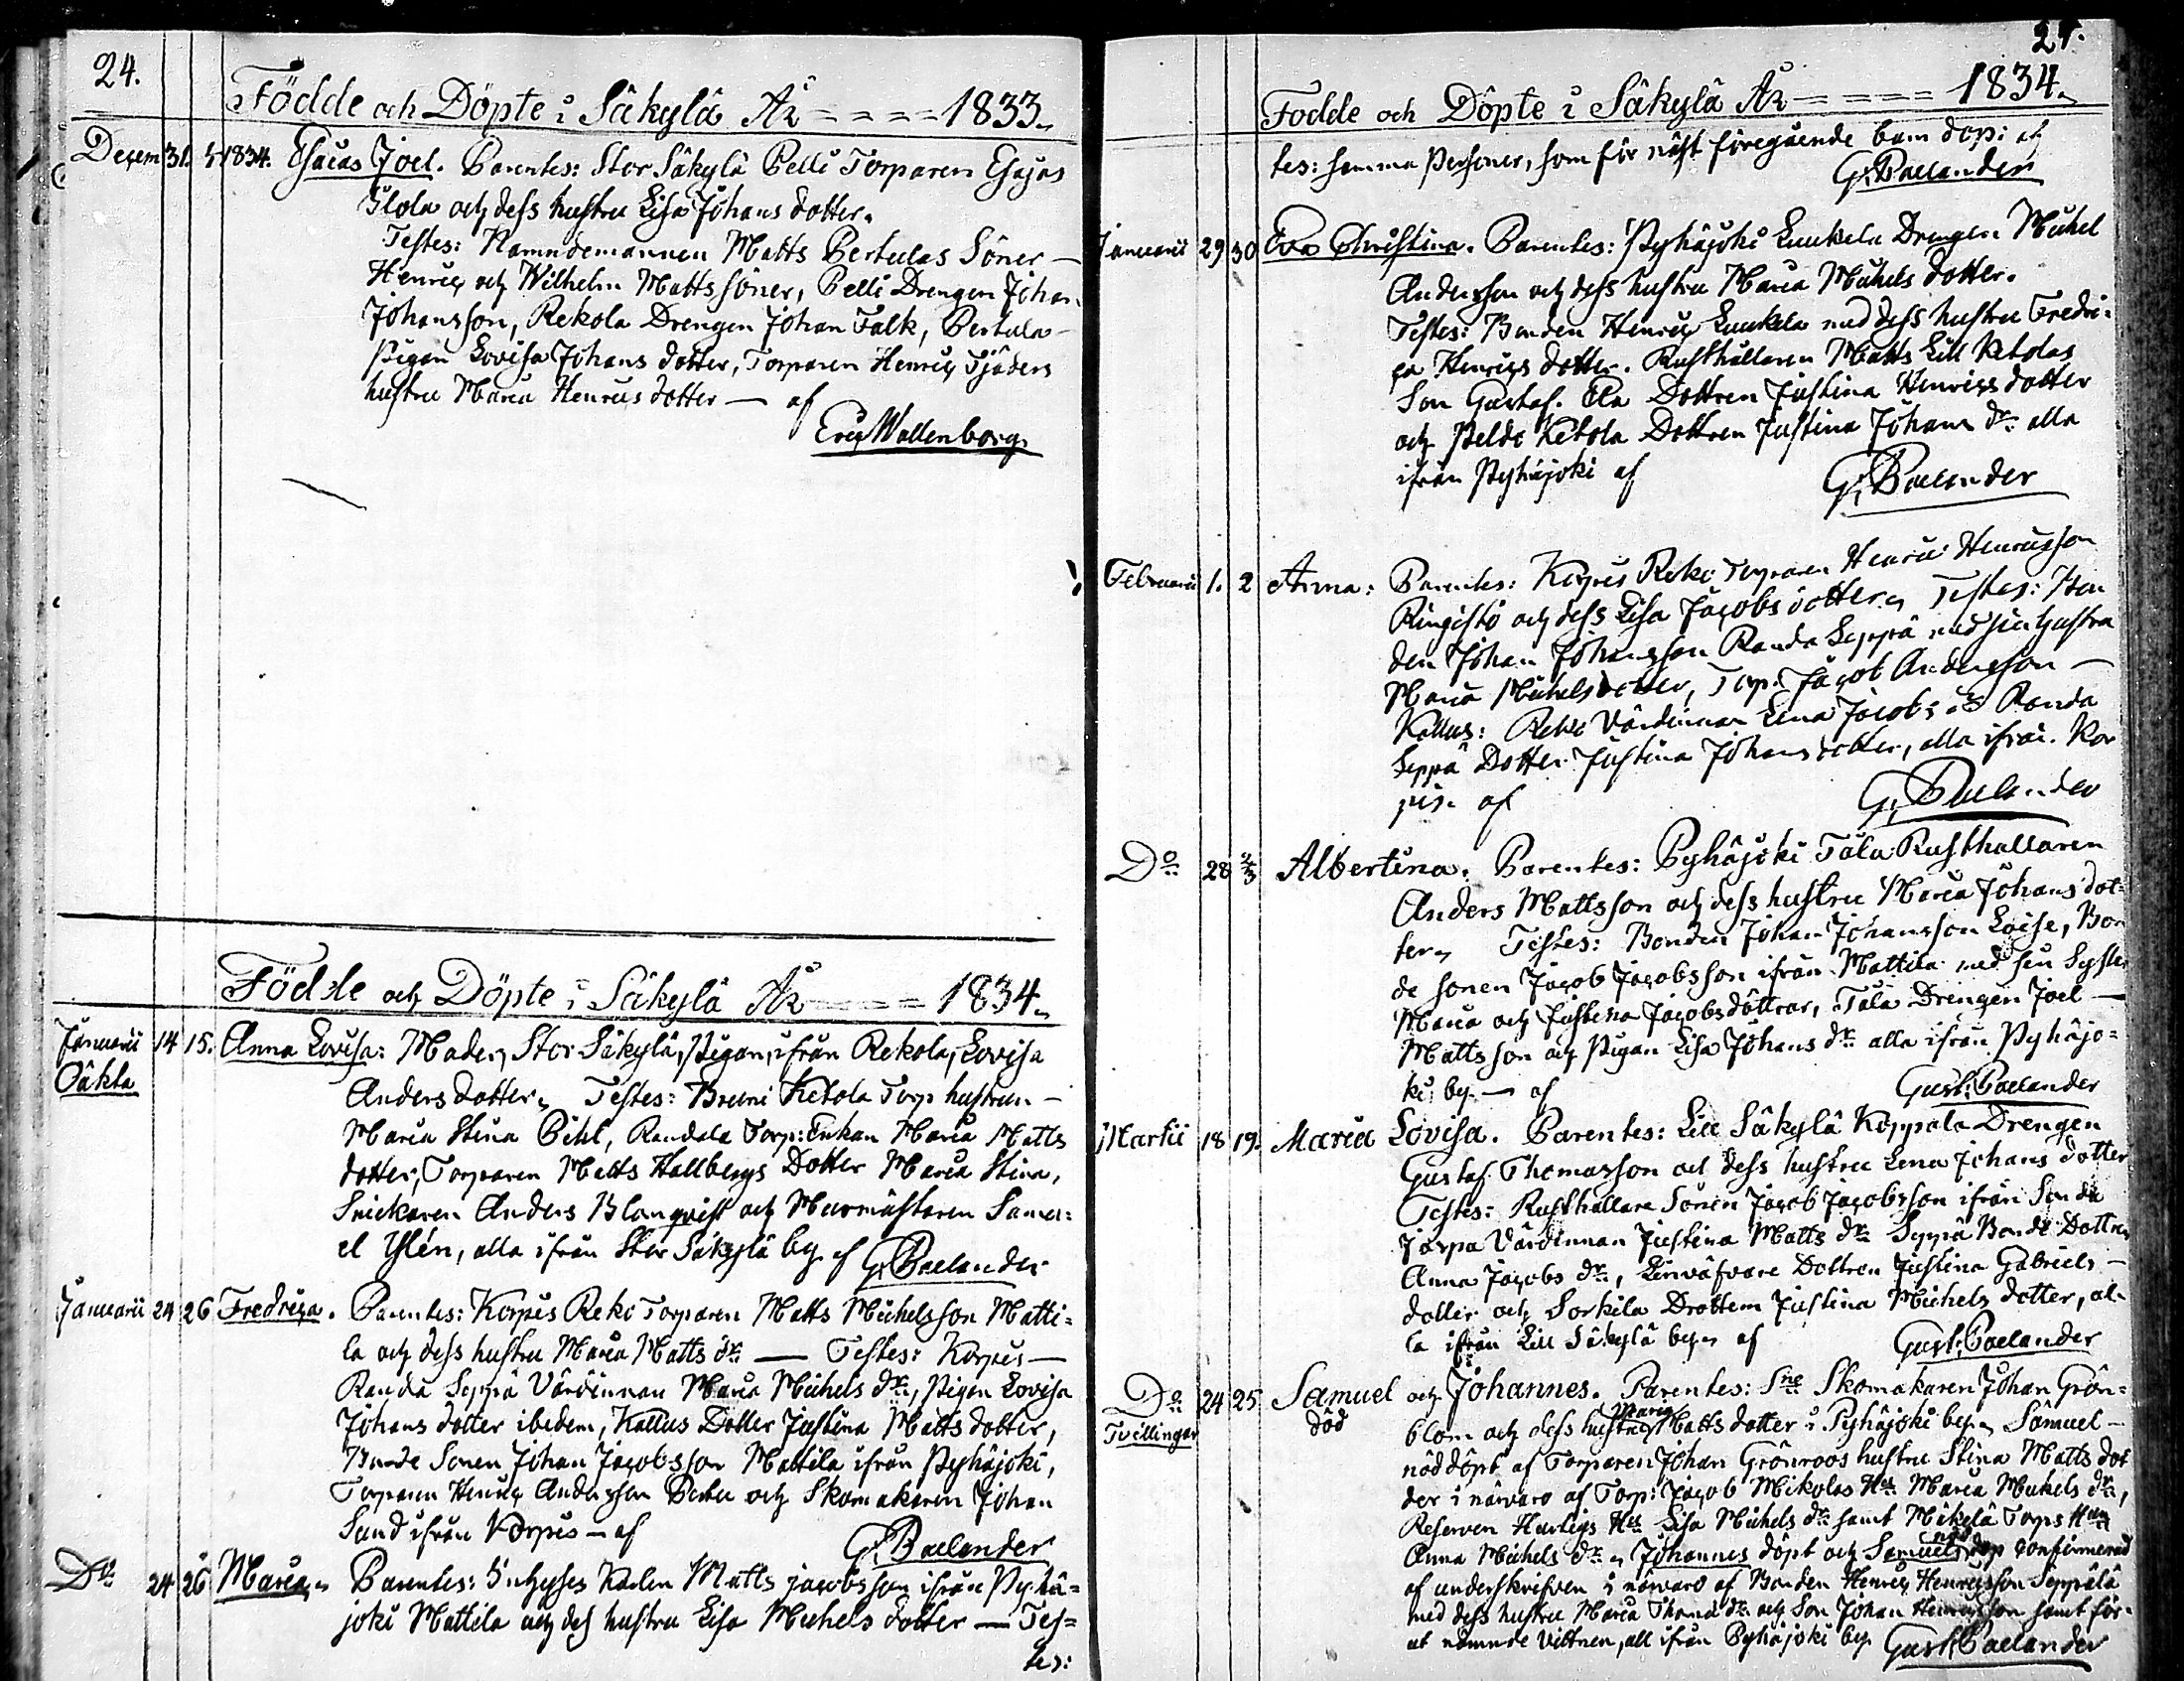 24.
Födde och Döpte i Säkylä År ---- 1833.
Decem 31. 5 1834. Esaias Joel. Parentes: Stor Säkylä Pelli Torparen Esajas
Ylola och dess hustru Lisa Johans dotter.
Testes: Nämndemannen Matts Bertulas Söner —
Henric och Wilhelm Matts söner, Pelli Drengen Johan
Johansson, Rekola Drengen Johan Falk, Bertula
Pigan Lovisa Johans dotter, Torparen Henric Tjäders
hustru Maria Henrics dotter — af
Eric Wallenborg.
Födde och Döpte i Säkylä År ---- 1834.
Januarii 14 15. Anna Lovisa: Mader, Stor Säkylä, Pigan, ifrån Rekola, Lovisa
Oäkta
Anders dotter, Testes: Breuni Ketola Torp hustrun —
Maria Stina Pihl, Randala Torp: Enkan Maria Matts
dotter, Torparen Matts Hallbergs Dotter Maria Stina,
Snickaren Anders Blomqvist och Murmästaren Samu=
el Ylén, alla ifrån Stor Säkylä by af G. Paelander
Januarii 24 26 Fredrica. Parentes: Korpis Reko Torparen Matts Michelsson Matti=
la och dess hustru Maria Matts dr — Testes: Korpis —
Randa Seppä Värdinnan Maria Michels dr, Pigan Lovisa
Johans dotter ibidem, Kallus Dotter Justina Matts dotter,
Bonde Sonen Johan Jacobsson Mattila ifrån Pyhäjoki,
Torparen Henric Andersson och Skomakaren Johan
Sund ifrån Korpis — af
G. Paelander
Do 24 26 Maria, Parentes: Karlen Matts Jacobsson ifrån Pyhä=
joki Mattila och des hustru Lisa Michels dotter — Tes=
tes:
Födde och Döpte i Säkylä År ---- 1834.
tes: samma Personer, som för näst föregående barn dop: af
G. Paelander
Januarii 29 30 Eva Christina. Parentes: Pyhäjoki Luukela Drengen Michel
Andersson och dess hustru Maria Michels dotter.
Testes: Bonden Henric Luukela med dess hustru Fredri=
ca Henrics dotter. Rusthållaren Matts Lill Ketolas
Son Gustaf. Ola Dottren Justina Henrics dotter
och Peldo Ketola Dottren Justina Johans dr alla
ifrån Pyhäjoki af
G. Paelander
Februarii 1. 2 Anna: Parentes: Korpis Reko Torparen Henric Henricsson
Ringistö och dess Lisa Jacobs dotter, Testes: Bon
den Johan Johansson Randa Seppä med sin hustru
Maria Michels dotter, Torp. Jacob Andersson —
Kallus: Reko Värdinnan Lena Jacobs dr Randa
Seppä Dotter Justina Johans dotter, alla ifrån Kor
pis. af
G. Paelander
Do 28 2/3 Albertina. Parentes: Pyhäjoki Tala Rusthållaren
Anders Mattsson och dess hustru Maria Johans dot=
ter, Testes: Bonden Johan Johansson Loise, Bon
de sonen Jacob Jacobsson ifrån Mattila med sin Syster
Maria och Justina Jacobsdöttrar, Tala Drengen Joel —
Mattsson och Pigan Lisa Johans dr alla ifrån Pyhäjo=
ki by — af
Gust: Paelander
Martii 18 19. Maria Lovisa. Parentes: Lill Säkylä Koppala Drengen
Gustaf Thomasson och dess hustru Lena Johans dotter
Testes: Rusthållare Sonen Jacob Jacobsson ifrån
Jarpa Värdinnan Justina Matts dr Seppä Bonde Dottren
Anna Jacobs dr, Linväfvare Dottren Justina Gabriels —
dotter och Sorkila Drottern Justina Michels dotter, al=
la ifrån Lill Säkylä by, af
Gust: Paelander
Do 24 25 Samuel och Johannes. Parentes: Sne Skomakaren Johan Grön=
Tvillingar död
blom och dess hustru Maria Matts dotter i Pyhäjoki by, Samuel —
nöddöpt af Torparen Johan Grönroos hustru Stina Matts dot
der i närvaro af Torp: Jacob Mikolas Hu Maria Michels dr,
Reserven Hurtigs Hu Lisa Michels dr samt Mäkelä Torps Hun
Anna Michels dr, Johannes döpt och Samuels nöd dop confirmerad
af underskrifven i närvaro af Bonden Henric Henricsson Seppälä
med dess hustru Maria Thoma dr och Son Johan Henricsson samt för=
ut nämnde Vittnen, all ifrån Pyhäjoki by. Gust: Paelander